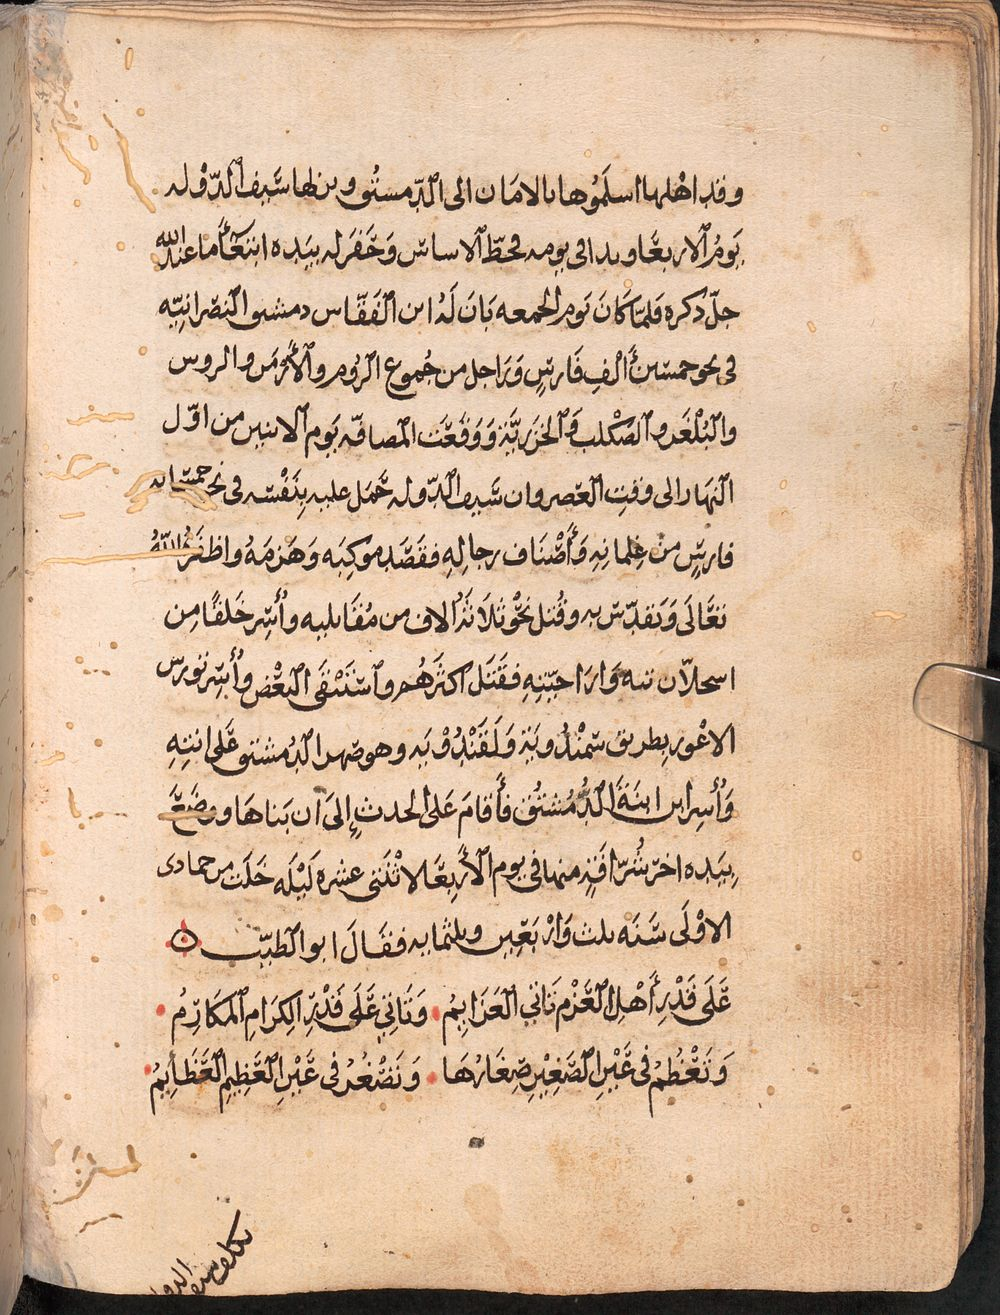 وقد اهلها اسلموها بالامان الى الدمستق ونزلها سيف الدوله
يوم الاربعا وبدا فى يومه فحط الاساس وحفر له بيده ابتغا ما عند الله
جل ذكره فلما كان يوم الجمعه بان له ابن الفقاس دمشتق النصرانيه
فى نحو خمسين الف فارس وراجل من جموع الروم والارمن والروس
والبلغر والصكلب والخزريّة ووقعت المصافه يوم الاثنين من اوّل
النهار الى وقت العصر وان سيف الدوله حمل عليه بنفسه فى نحو خمسمايه
فارس من غلمانه وأصناف رجاله فقصد موكبه وهزمه واظفره الله
تعالى وتقدس به وقتل نحو ثلاثة الاف من مقاتليه وأسر خلقا من
اسحلاّريته واراحيته فقتل اكثرهم واستبقى البعض وأسر تودس
الاعور بطريق سمندوية ولقندويه وهو صهر الدمستق على ابنته
وأسر ابن ابنة الدمستق فأقام على الحدث إلى أن بناها ووضع
بيده اخر شرّافة منها فى يوم الأربعا لاثنتى عشره ليله خلت من جمادى
الاولى سنه ثلث واربعين وثلثمايه فقال ابو الطيّب
على قدر أهل العزم تاتي العزايم وتاتي على قدر الكرام المكارم
وتعظم في عين الصغير صغارها وتصغر في عين العظيم العظايم